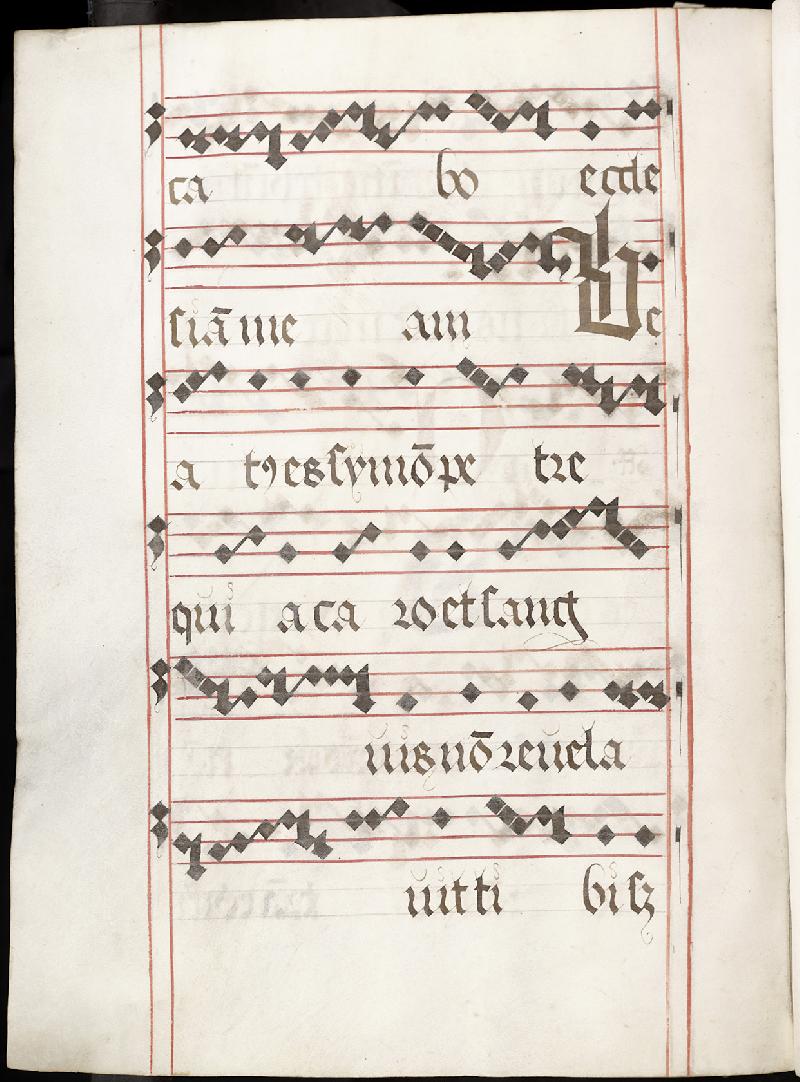 ca bo eccle
siā me am Be
a tꝰ es symō pe tre
qui a ca ro et sang
uis nō reuela
uit ti bi sꝫ